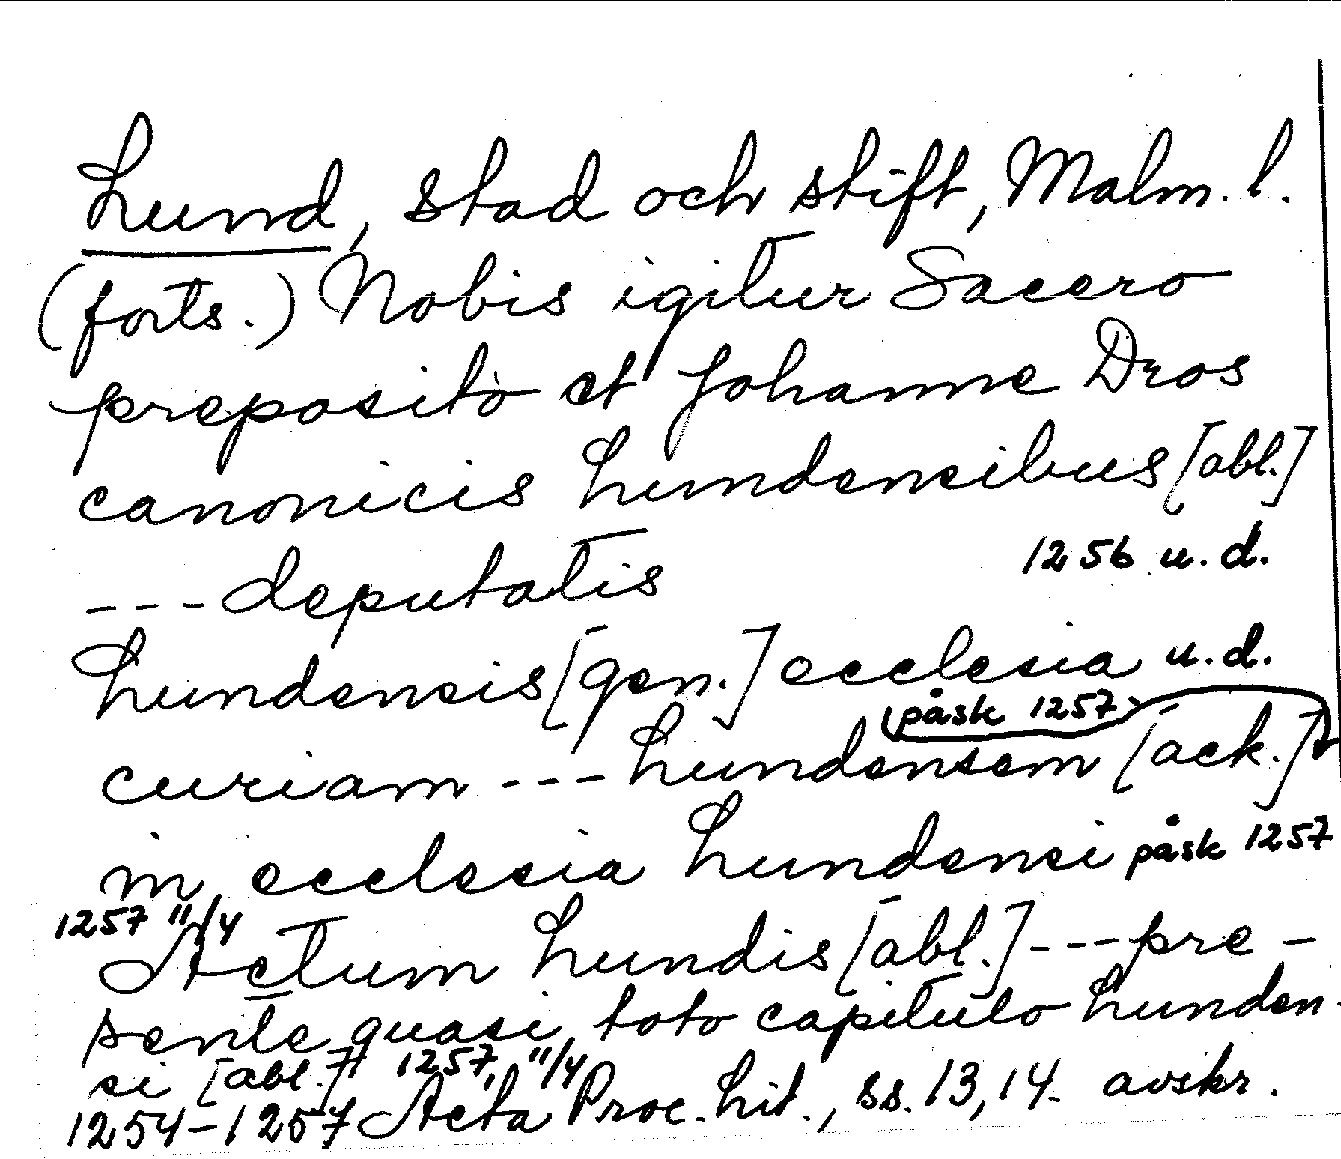 Lund, stad och stift, Malm. l.
(forts.) Nobis igitur Sacero
preposito et Johanne Dros
canonicis Lundensibus [abl.]
--- deputatis 1256 u.d.
Lundensis [gen.] ecclesia u.d.
påsk 1257
curiam --- Lundensem [ack.]
in ecclesia Lundensi påsk 1257
1257 11/4
Actum Lundis [abl.] --- pre-
sente quasi toto capitulo Lunden-
si [abl.] 1257, 11/4
1254-1257 Acta Proc. Lit., ss. 13, 14. avskr.